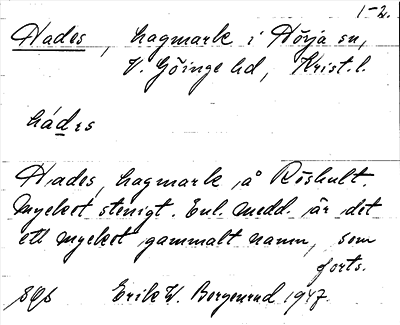 1-2.
Hades, hagmark i Hörja sn,
V. Göinge hd, Krist. l.
hádɛs
Hades, hagmark å Röshult.
Mycket stenigt. Enl. medd. är det
ett mycket gammalt namn, som
forts.
Erik W. Bergenrud 1947.